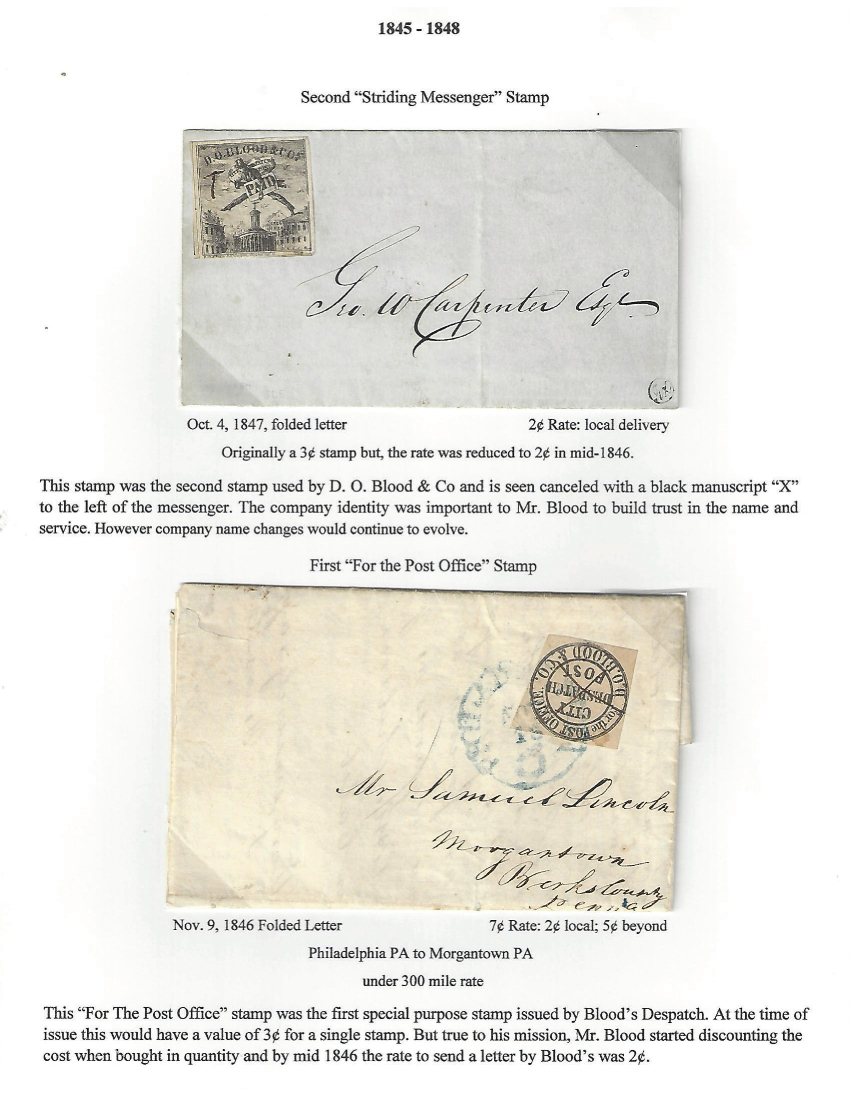 1845 - 1848
Second “Striding Messenger” Stamp
D.O.BLOOD & Co's
PAID
Geo. W Carpenter Esqr
Oct. 4, 1847, folded letter
2¢ Rate: local delivery
Originally a 3¢ stamp but, the rate was reduced to 2¢ in mid-1846.
This stamp was the second stamp used by D. O. Blood & Co and is seen canceled with a black manuscript “X”
to the left of the messenger. The company identity was important to Mr. Blood to build trust in the name and
service. However company name changes would continue to evolve.
First “For the Post Office” Stamp
D.O.BLOOD & CO.
For the POST OFFICE
CITY
DESPATCH
POST
Mr Samuel Lincoln
Morgantown
Berks County
Penna
Nov. 9, 1846 Folded Letter
7¢ Rate: 2¢ local; 5¢ beyond
Philadelphia PA to Morgantown PA
under 300 mile rate
This “For The Post Office” stamp was the first special purpose stamp issued by Blood’s Despatch. At the time of
issue this would have a value of 3¢ for a single stamp. But true to his mission, Mr. Blood started discounting the
cost when bought in quantity and by mid 1846 the rate to send a letter by Blood’s was 2¢.